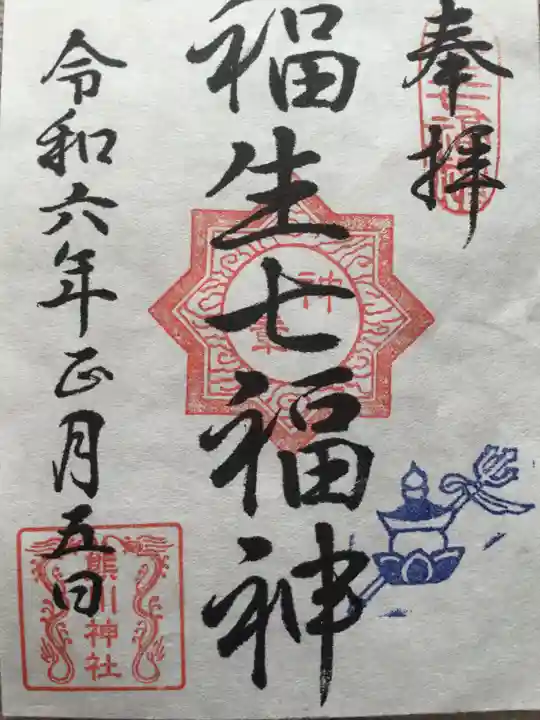 奉拝
福生七福神
令和六年正月五日
神
章
熊川神社